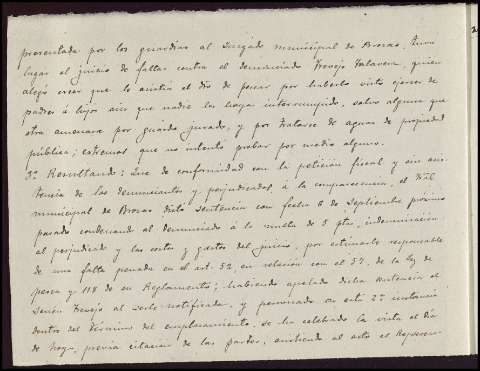 presentada por los guardias al Juzgado municipal de Brozas, tuvo
lugar el juicio de faltas contra el denunciado Trevejo Talavera, quien
alegó creer que lo asistía el día de pescar por haberlo visto ejercer de
padres á hijos sin que nadie los haya interrumpido, salvo alguna que
otra amenaza por guarda jurado, y por tratarse de aguas de propiedad
pública; extremos que no intentó probar por medio alguno.
3º Resultando: Que de conformidad con la petición fiscal y sin asis
tencia de los denunciantes y perjudicados, á la comparecencia, el Tral
municipal de Brozas dictó sentencia con fecha 6 de Septiembre próximo
pasado condenando al denunciado á la multa de 5 ptas, indemnización
al perjudicado y las costas y gastos del juicio, por estimarle responsable
de una falta penada en el art. 52, en relación con el 37, de la ley de
pesca y 118 de su Reglamento; habiendo apelado dicha sentencia el
señor Trevejo al serle notificada, y personado en esta 2ª instancia
dentro del término del emplazamiento, se ha celebrado la vista el día
de hoy, previa citación de las partes, asistiendo al acto el Represen